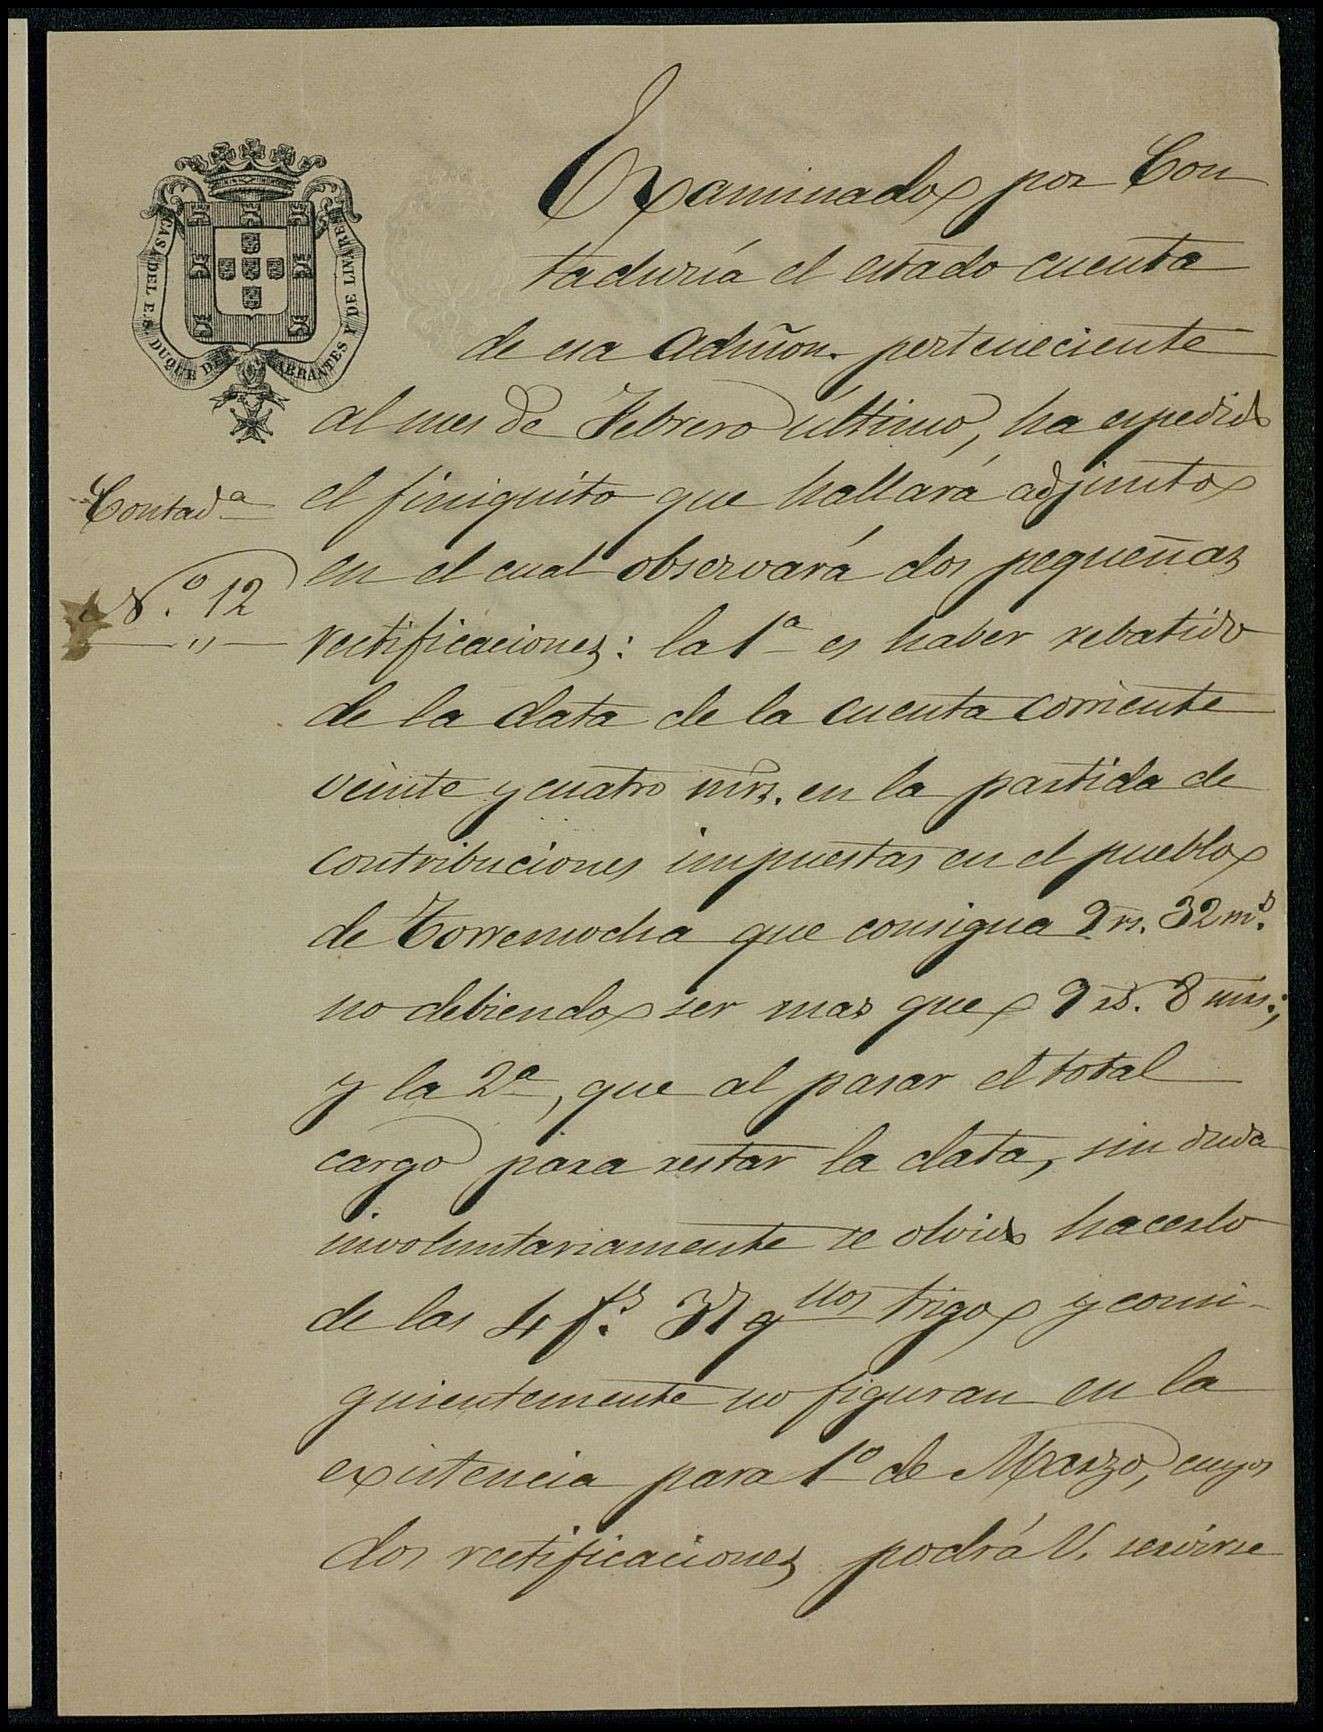 CASA DEL E. S. DUQUE DE ABRANTES Y DE LINARES
Examinado por Con
taduría el estado cuenta
de esa Admñon. perteneciente
al mes de Febrero último, ha espedido
Contad.ª
el finiquito que hallará adjunto
en el cual observará dos pequeñas
N.º 12
rectificaciones: la 1ª es haber rebatido
de la data de la cuenta corriente
veinte y cuatro mrs. en la partida de
contribuciones impuestas en el pueblo
de Torremocha que consigna 9 rs. 32 ms.
no debiendo ser mas que 9 rs. 8 mrs.;
y la 2ª, que al pasar el total
cargo para restar la data, sin duda
involuntariamente se olvidó hacerlo
de las 4 fs. 37 qllos trigo y consi-
guientemente no figuran en la
existencia para 1º de Marzo, cuyas
dos rectificaciones podrá V. servirse